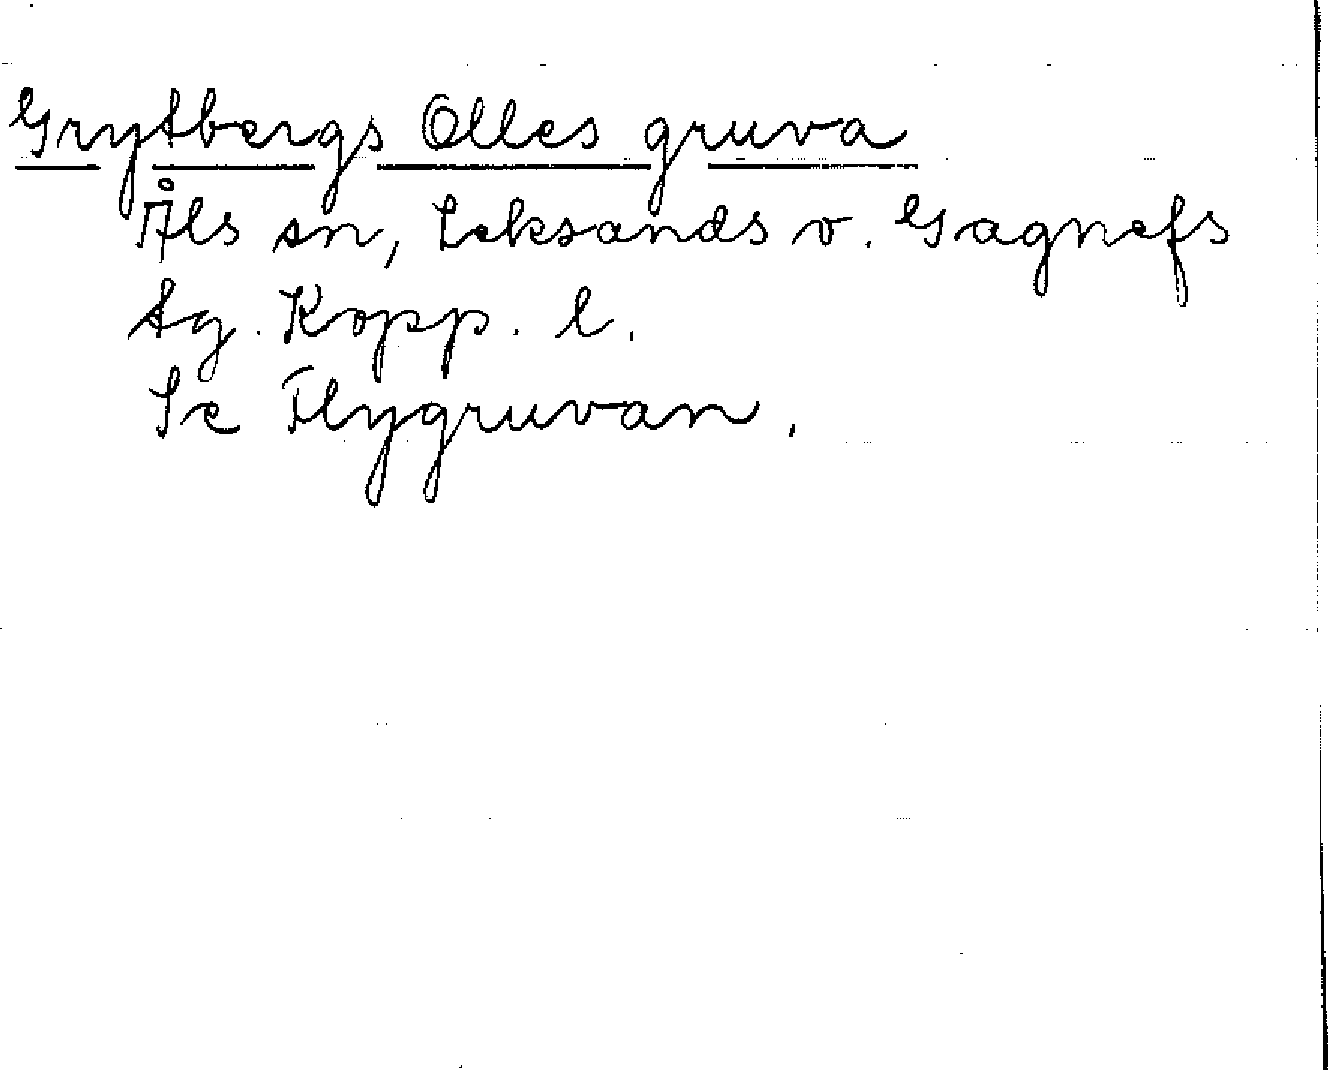 Grytbergs Olles gruva
Åls sn, Leksands o. Gagnefs
tg. Kopp. l.
Se Flygruvan.